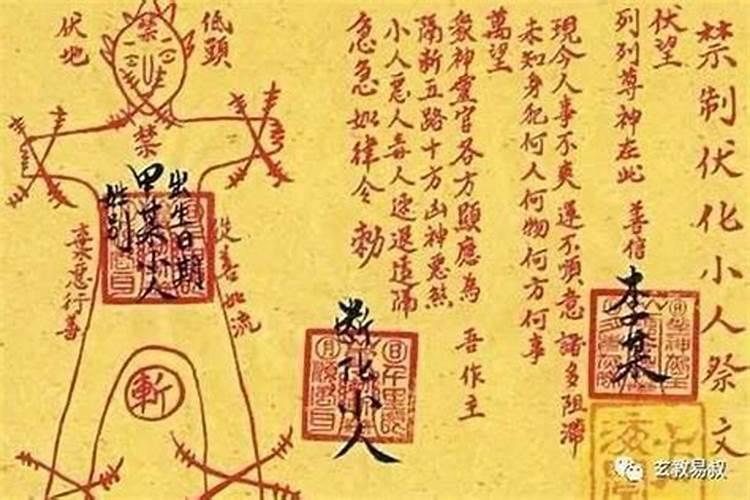 禁制伏化小人祭文
伏望
列列尊神在此 善信 李某
現今人事不爽運不順意諸多阻滯
未知身犯何人何物何方何事
萬望
眾神靈官各方顯應為 吾作主
隔斷五路十方凶神惡煞
小人惡人毒人速退遠隔
急急如律令 勅
斷化小人
低頭
伏地
禁
禁
出生日期
甲某小人
姓别
從善如流
棄惡行善
斬
玄教易叔